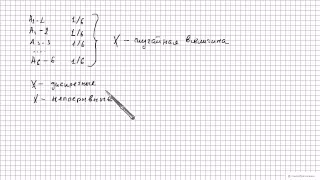 A₁-1 1/6
A₂-2 1/6
A₃-3 1/6
...
A₆-6 1/6
X - случайная величина
X - дискретные
X - непрерывные